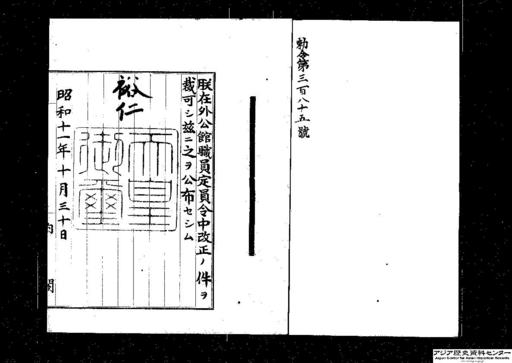 勅令第三百八十五號
朕在外公館職員定員令中改正ノ件ヲ
裁可シ茲ニ之ヲ公布セシム
裕仁
天皇御璽
昭和十一年十月三十日
内閣
アジア歴史資料センター
Japan Center for Asian Historical Records